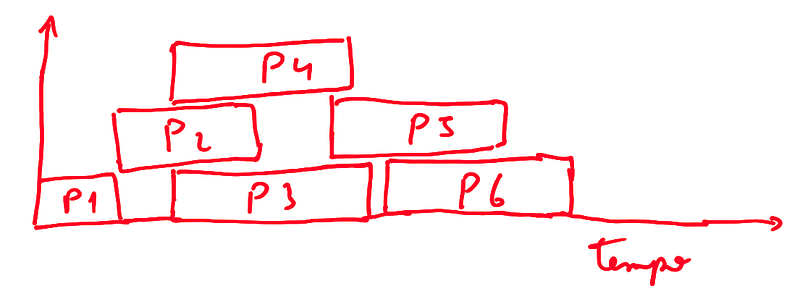 P4
P2
P5
P1
P3
P6
tempo